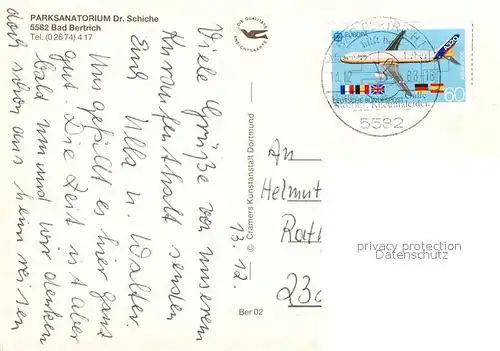 PARKSANATORIUM Dr. Schiche
5582 Bad Bertrich
Tel. (02674) 4 17
DIE QUALITÄTS
ANSICHTSKARTE
13.12.
Viele Grüße von unserem
Kuraufenthalt senden
Euch Ulla u. Walter.
Uns gefällt es hier ganz
gut. Die Zeit ist aber
bald um und wir denken
doch schon ans heim reisen
© Cramers Kunstanstalt Dortmund
Ber 02
EUROPA
60
DEUTSCHE BUNDESPOST
hilft bei
88-18
5582
An
Helmut
Rath
privacy protection
Datenschutz